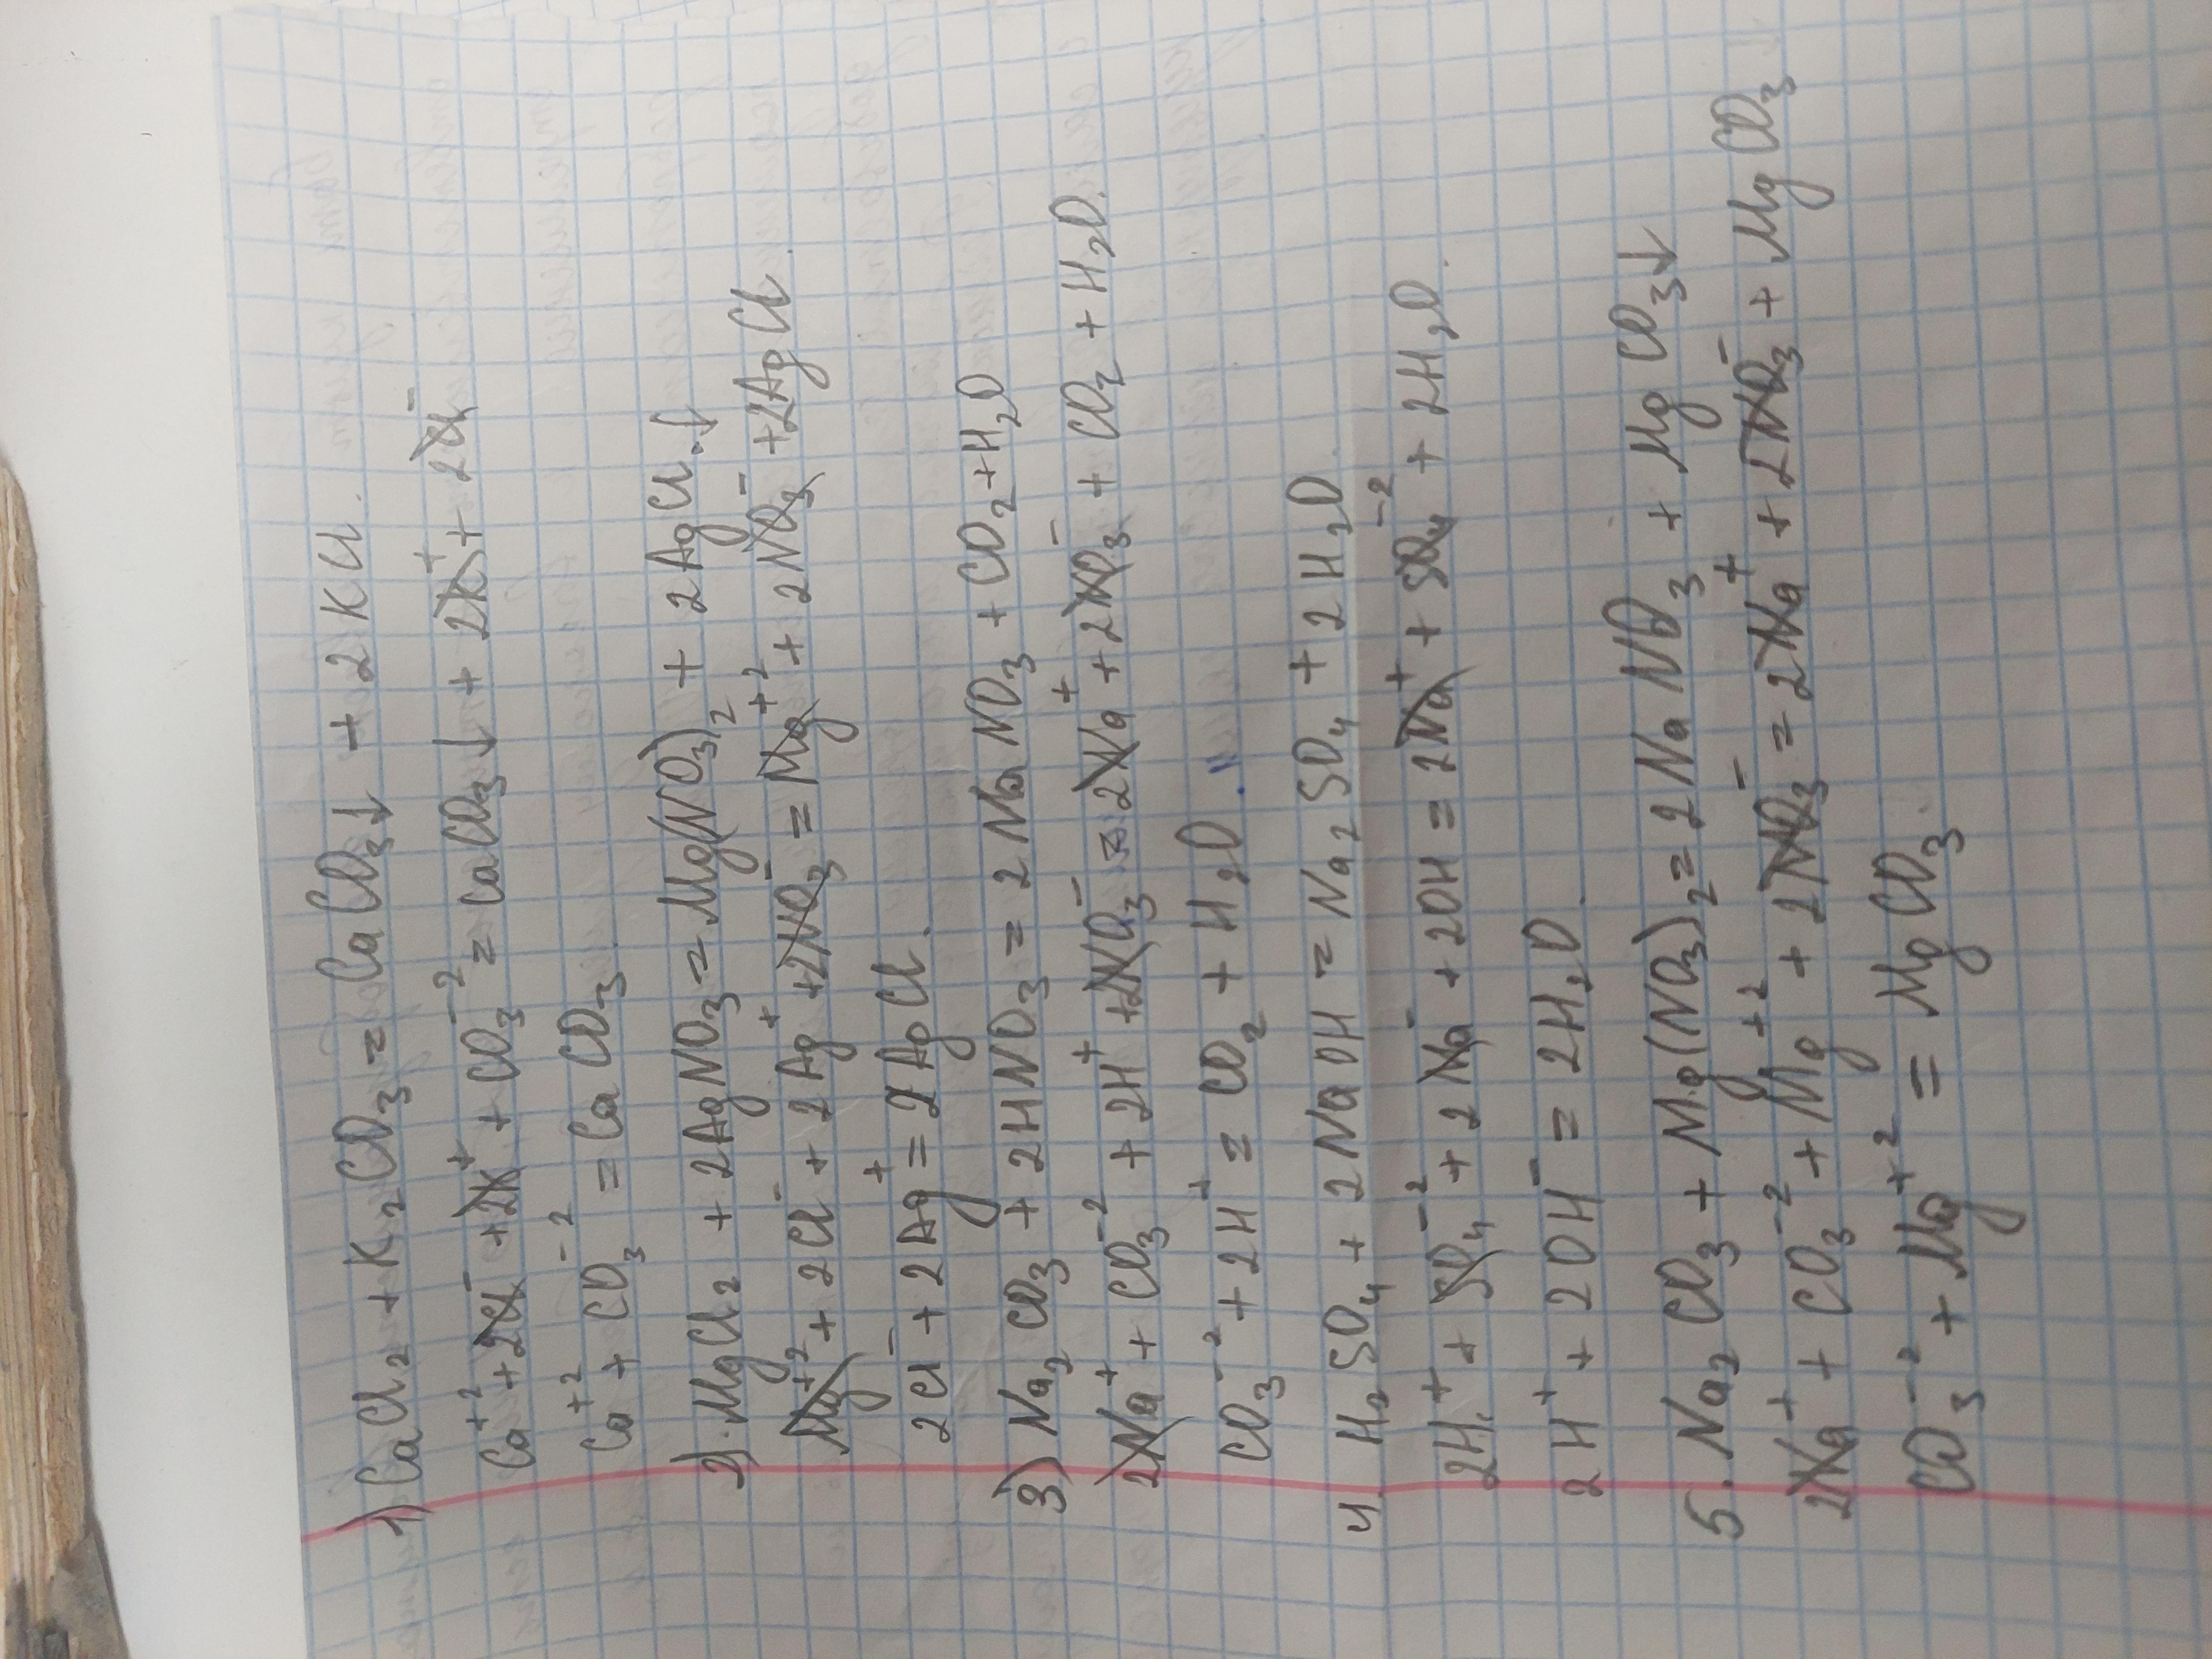 1) CaCl₂ + K₂CO₃ = CaCO₃↓ + 2KCl.
Ca⁺² + 2Cl⁻ + 2K⁺ + CO₃⁻² = CaCO₃↓ + 2K⁺ + 2Cl⁻
Ca⁺² + CO₃⁻² = CaCO₃
2). MgCl₂ + 2AgNO₃ = Mg(NO₃)₂ + 2AgCl.↓
Mg⁺² + 2Cl⁻ + 2Ag⁺ + 2NO₃⁻ = Mg⁺² + 2NO₃⁻ + 2AgCl.
2Cl⁻ + 2Ag⁺ = 2AgCl.
3) Na₂CO₃ + 2HNO₃ = 2NaNO₃ + CO₂ + H₂O
2Na⁺ + CO₃⁻² + 2H⁺ + 2NO₃⁻ = 2Na⁺ + 2NO₃⁻ + CO₂ + H₂O.
CO₃⁻² + 2H⁺ = CO₂ + H₂O.
4. H₂SO₄ + 2NaOH = Na₂SO₄ + 2H₂O.
2H⁺ + SO₄⁻² + 2Na⁺ + 2OH⁻ = 2Na⁺ + SO₄⁻² + 2H₂O.
2H⁺ + 2OH⁻ = 2H₂O.
5. Na₂CO₃ + Mg(NO₃)₂ = 2NaNO₃ + MgCO₃↓
2Na⁺ + CO₃⁻² + Mg⁺² + 2NO₃⁻ = 2Na⁺ + 2NO₃⁻ + MgCO₃
CO₃⁻² + Mg⁺² = MgCO₃.